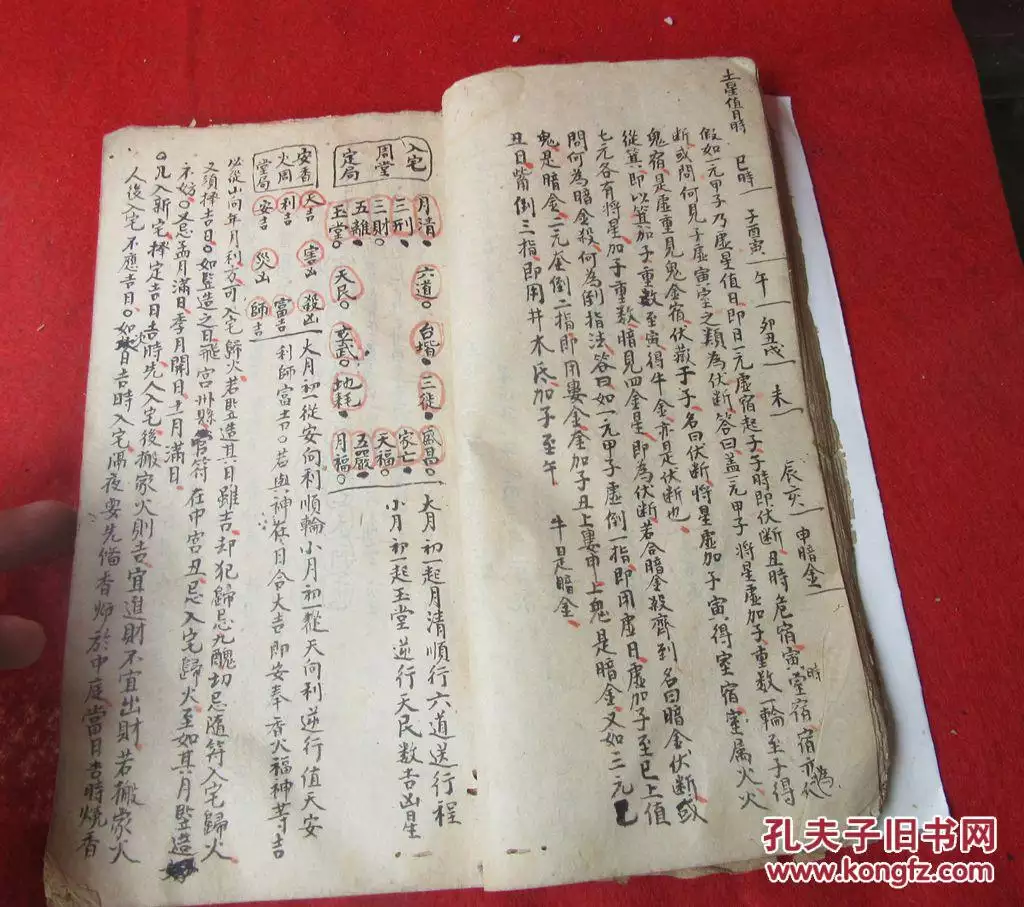 土星值日時
巳時 子酉寅 午 卯丑戌 未 辰亥 申暗金
假如一元甲子乃虛星值日即日一元虛宿起子子時即伏断丑時危宿寅時室宿
断或問何見子虛寅室之類為伏断答曰盖一元甲子將星虛加子重数一輪至子得
鬼宿是虛重見鬼金宿伏藏于子名曰伏断將星虛加子寅得室宿室属火火
從箕即以箕加子重数至寅得牛金亦是伏断也
七元各有將星加子重数暗見四金星即為伏断若合暗金殺齊到名曰暗金伏断或
問何為暗金殺何為倒指法答曰如一元甲子虛倒一指即用虛日虛加子至巳上值
鬼是暗金二元奎倒二指即用婁金奎加子丑上婁申上鬼是暗金又如三元
丑日觜倒三指即用井木氐加子至午 牛是暗金
入宅周堂定局
月清 六道 台堦 三徙 盛昌
三刑 家亡
三財 天福
五離 玄武 地耗
玉堂 天民 月福
大月初一起月清順行六道送行程
小月初一起玉堂逆行天民数吉凶星
安香火周堂局
天吉 害凶 殺凶
利吉 富吉
安吉 災凶 師吉
大月初一從安向利順輪小月初一從天向利逆行值天安
利師富吉若與神在日合大吉即安奉香火福神等吉
必從山向年月利方可入宅歸火若竪造其日雖吉却犯歸忌九醜切忌隨符入宅歸火
又須擇吉日如竪造之日飛宮州縣官符在中宮丑忌入宅歸火至如其月竪造
不妨又忌孟月滿日季月開日十一月滿日
凡入新宅擇定吉日吉時先入入宅後搬家火則吉宜進財不宜出財若搬家火
人後入宅不應吉日如日吉時入宅隔夜要先備香師於中庭當日吉時燒香
孔夫子旧书网
www.kongfz.com